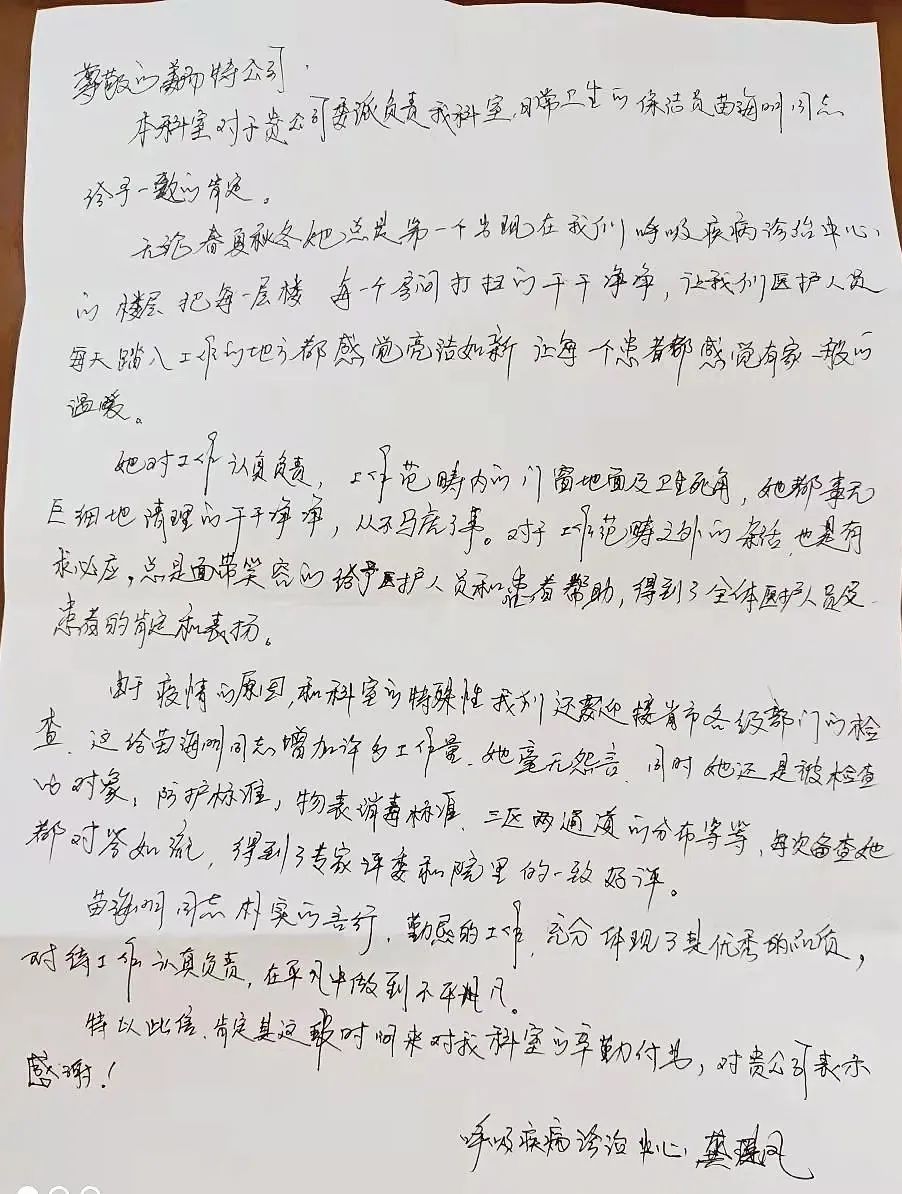 尊敬的美勤特公司.
本科室对于贵公司委派负责我科室,日常卫生的保洁员苗海明同志
给予一致的肯定。
无论春夏秋冬她总是第一个出现在我们呼吸疾病诊治中心,
的楼层把每一层楼 每一个房间打扫的干干净净,让我们医护人员
每天踏入工作的地方都感觉亮洁如新 让每个患者都感觉有家一般的
温暖。
她对工作认真负责,工作范畴内的门窗地面及卫生死角,她都事无
巨细地清理的干干净净,从不马虎了事。对于工作范畴之外的杂活,也是有
求必应,总是面带笑容的给予医护人员和患者帮助,得到了全体医护人员及
患者的肯定和表扬。
由于疫情的原因,和科室的特殊性我们还要迎接省市各级部门的检
查.这给苗海明同志增加许多工作量.她毫无怨言.同时她还是被检查
的对象,防护标准,物表消毒标准.三区两通道的分布等等,每次备查她
都对答如流,得到了专家评委和院里的一致好评。
苗海明同志朴实的言行,勤恳的工作,充分体现了其优秀的品质,
对待工作认真负责,在平凡中做到不平凡。
特以此信.肯定其这段时间来对我科室的辛勤付出,对贵公司表示
感谢!
呼吸疾病诊治中心